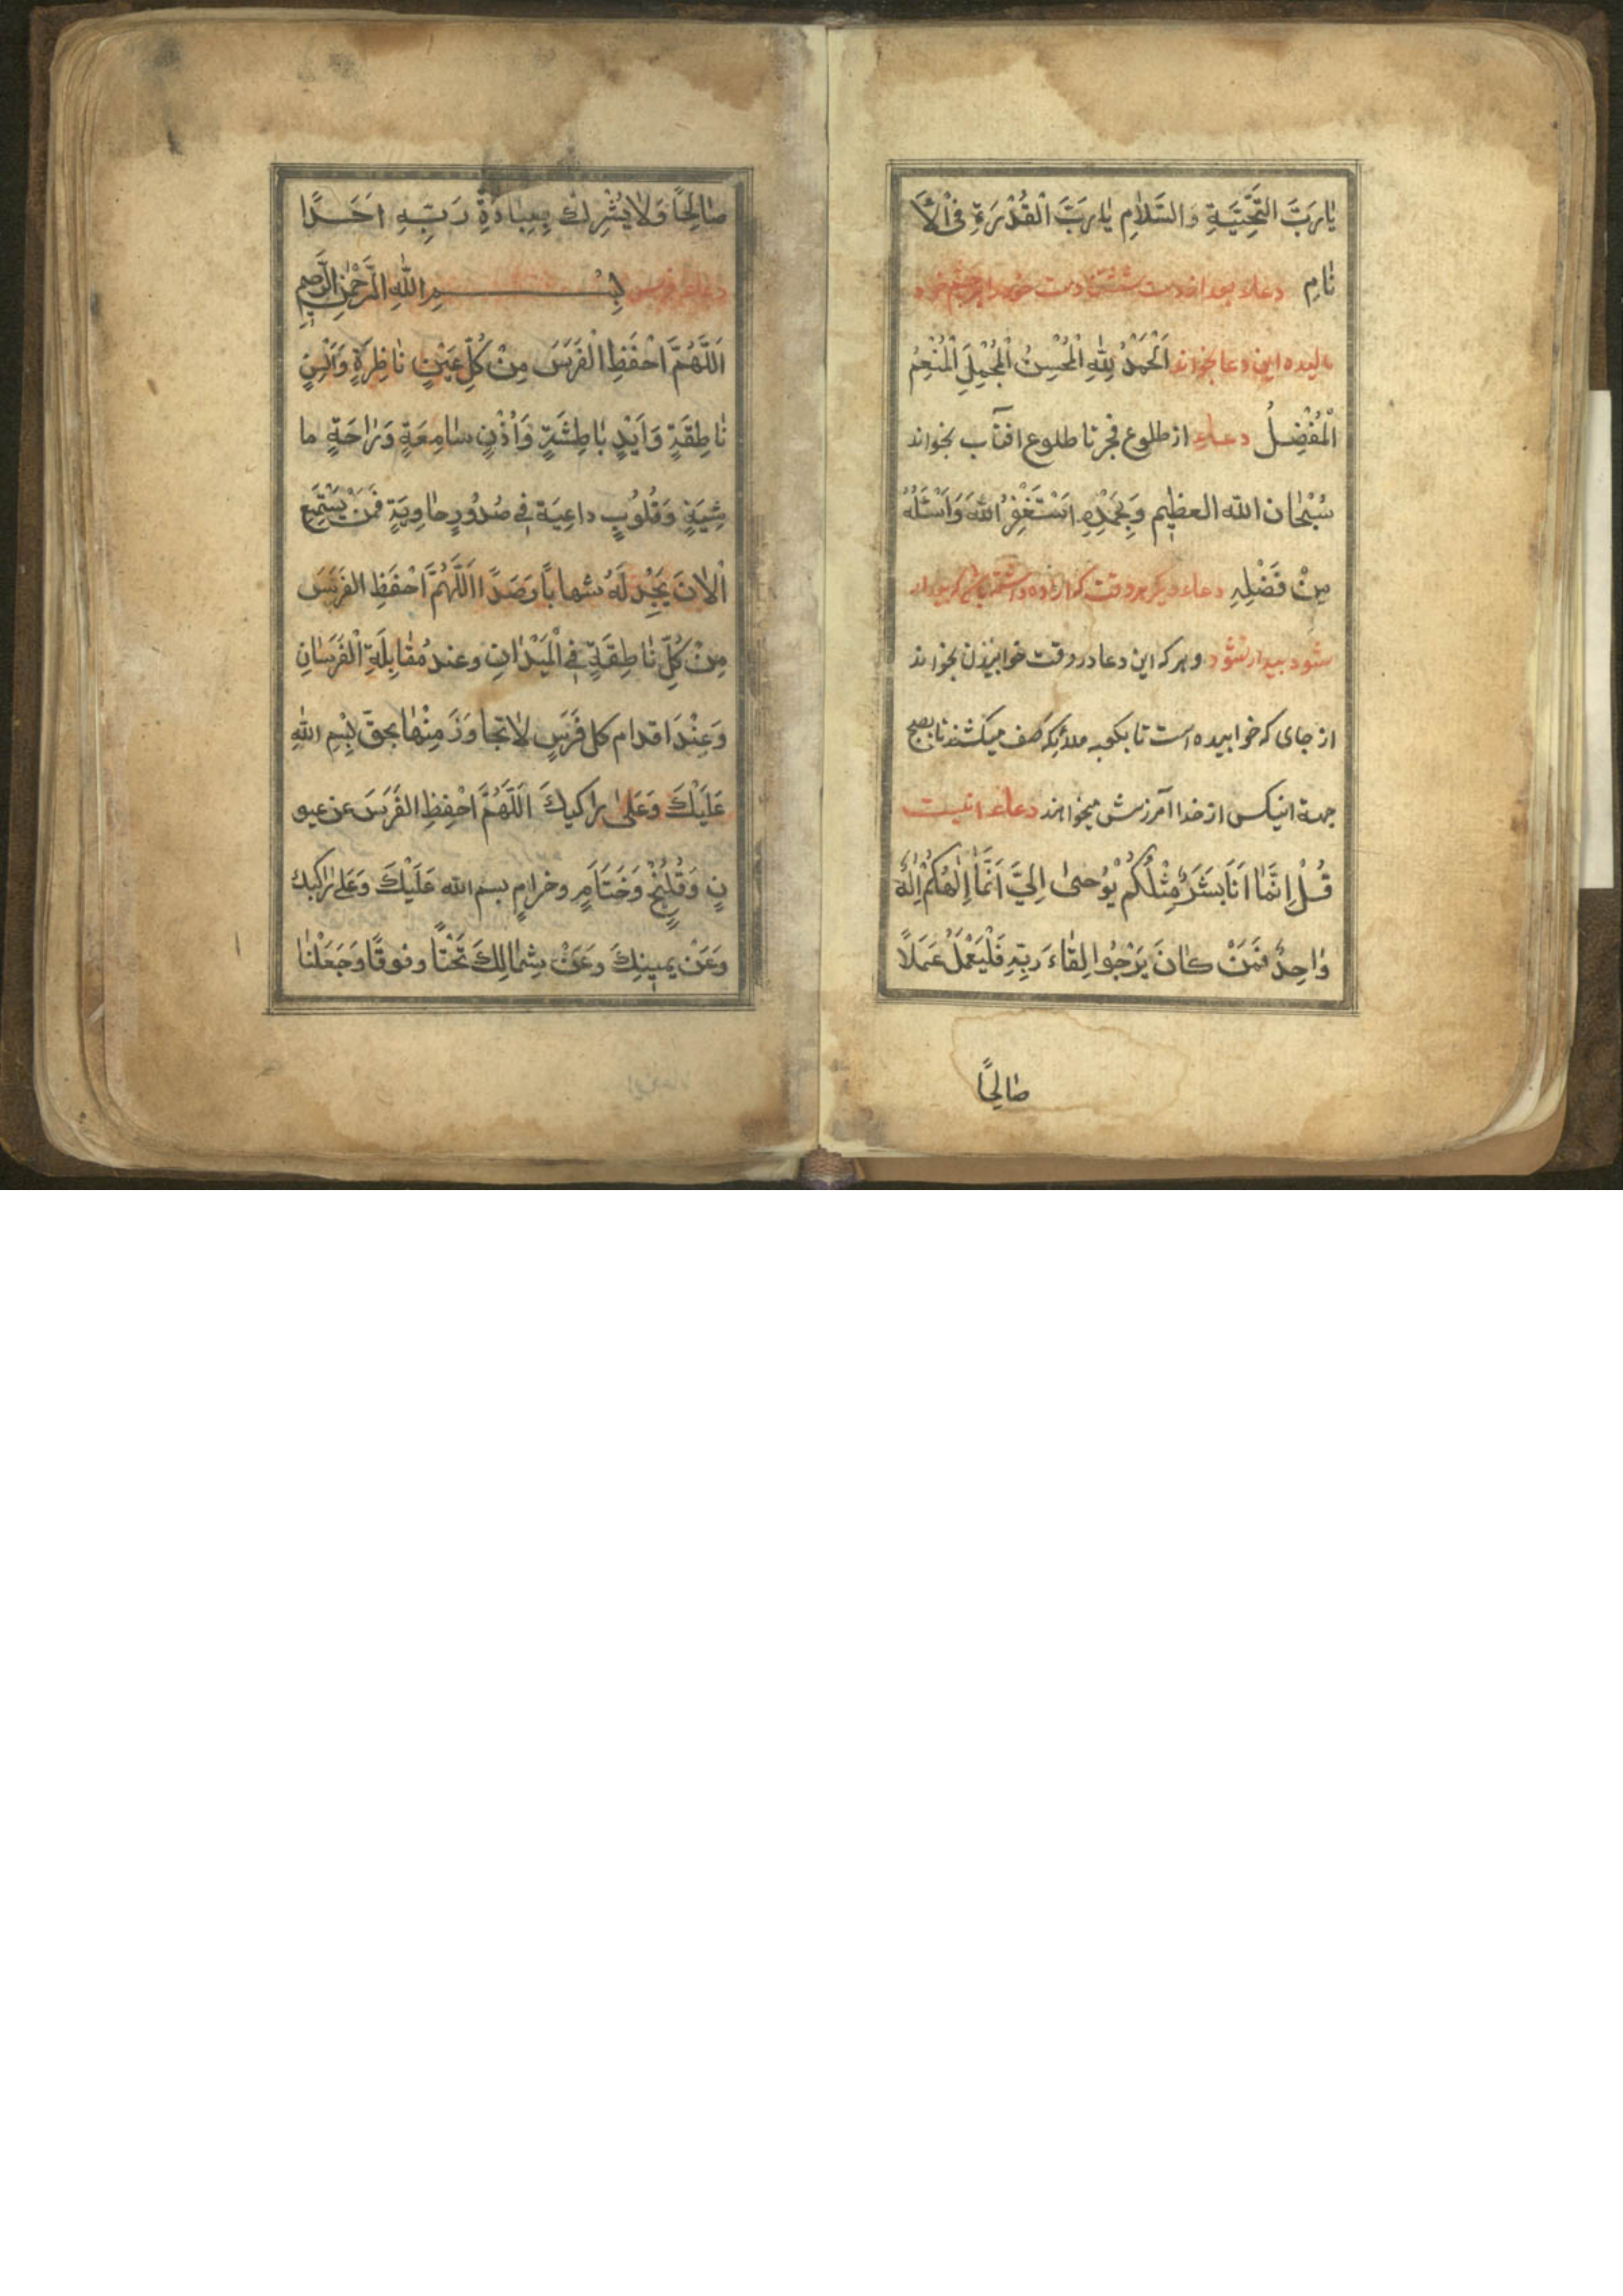 يٰارَبَّ التَّحِيَّةِ وَالسَّلاٰمِ يٰارَبَّ الْقُدْرَةِ فِى الْاَ
نٰامِ دعاء بعد از دست شستن دست خود را بر چشم خود
ماليده اين دعا بخواند اَلْحَمْدُ لِلّٰهِ الْمُحْسِنُ الْمُجْمِلِ الْمُنْعِمُ
الْمُفْضِلُ دعاء از طلوع فجر تا طلوع افتاب بخواند
سُبْحٰان الله العظيم وَبِحَمْدِهِ اَسْتَغْفِرُ اللهَ وَاَسْئَلُهُ
مِنْ فَضْلِهِ دعاء ديكر هر وقت كه اراده داشته باشى كه بيدار
شود بيدار شود و هر كه اين دعا در وقت خوابيدن بخواند
از جاى كه خوابيده است تا بكعبه ملائكه صف ميكشند تا بصبح
جهة انيكس از خدا آمرزش ميخواهند دعاء انيست
قُلْ اِنَّمٰا اَنَا بَشَرٌ مِثْلُكُمْ يُوُحىٰ اِلَيَّ اَنَّمٰا اِلٰهُكُمْ اِلٰهٌ
وٰاحِدٌ فَمَنْ كٰانَ يَرْجُوا لِقٰاءَ رَبِّهِ فَلْيَعْمَلْ عَمَلًا
صٰالِحًا
صٰالِحًا وَلاٰ يُشْرِك بِعِبٰادَةِ رَبِّهِ اَحَدًا
دعاء فرس بِسْمِ اللّٰهِ الرَّحْمٰنِ الرَّحِيمِ
اَللّٰهُمَّ احْفَظِ الْفَرَسَ مِنْ كُلِّ عَيْنٍ نٰاظِرَةٍ وَاَلْسِنٍ
نٰاطِقَةٍ وَاَيْدٍ بٰاطِشَةٍ وَاُذُنٍ سٰامِعَةٍ وَرٰاحَةٍ ما
شِيَةٍ وَقُلُوبٍ داعِيَة فِي صُدُورٍ حٰاوِيَةٍ فَمَنْ يَسْتَمِعِ
الْاٰنَ يَجِدْ لَهُ شهاباً رَصَدًا اَللّٰهُمَّ احْفَظِ الفَرَسَ
مِنْ كُلِّ نٰاطِقَةٍ فِي الْمَيْدٰانِ وعند مُقٰابِلَةِ الْفَرَسٰانِ
وَعِنْدَ اقدام كل فَرَسٍ لاٰ تجاوَزَ مِنْهٰا بحقّ بِسْمِ اللهِ
عَلَيْكَ وَعَلىٰ رٰاكيكَ اَللّٰهُمَّ احْفِظِ الفَرَسَ عن عيو
نٍ وَقُلِنْجٍ وَخَتٰامٍ وخرامٍ بسم الله عَلَيْكَ وَعَلىٰ رٰاكِبِك
وَعَنْ يمينِكَ وَعَنْ شِمٰالِكَ تَحْتًا وفوقًا وَجَعَلْنٰا